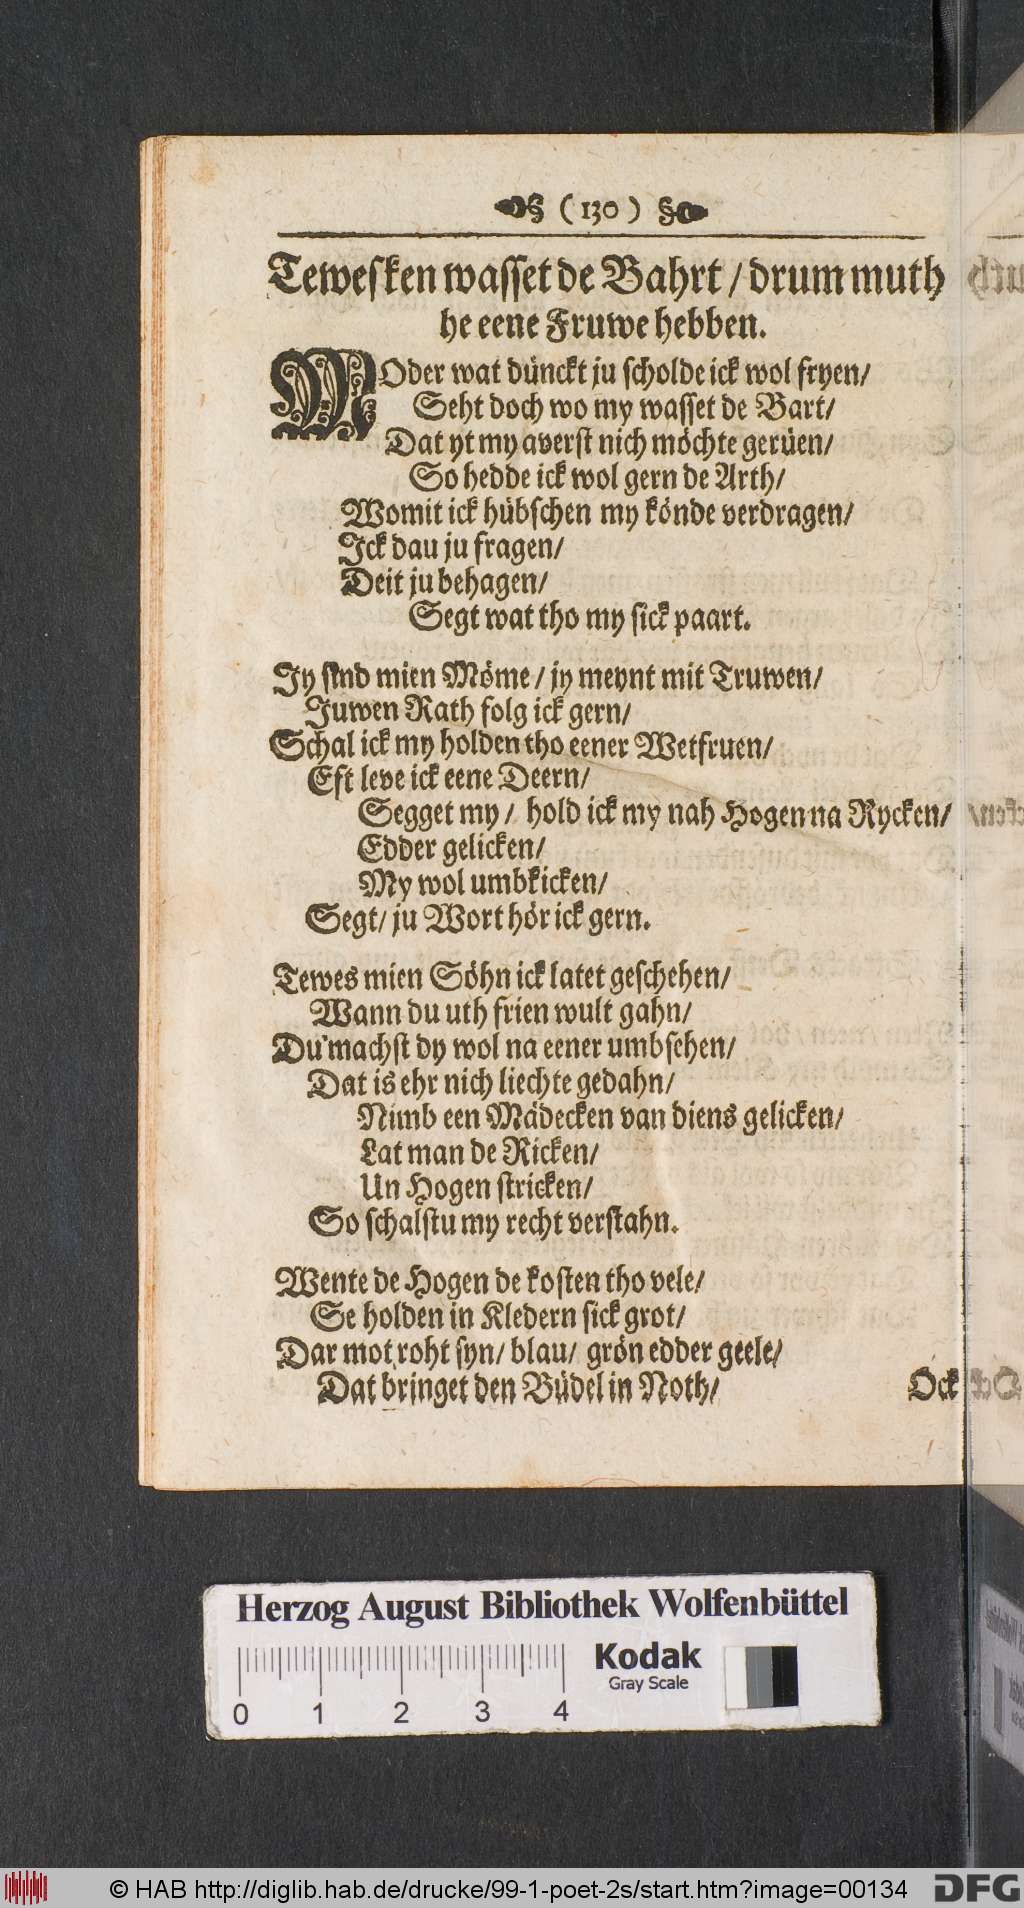 ( 130 )
Tewesken wasset de Bahrt / drum muth
he eene Fruwe hebben.
MOder wat dünckt ju scholde ick wol fryen/
Seht doch wo my wasset de Bart/
Dat yt my averst nich möchte gerüen/
So hedde ick wol gern de Arth/
Womit ick hübschen my könde verdragen/
Ick dau ju fragen/
Deit ju behagen/
Segt wat tho my sick paart.
Jy sind mien Möme / jy meynt mit Truwen/
Juwen Rath folg ick gern/
Schal ick my holden tho eener Wetfruen/
Eft leve ick eene Deern/
Segget my / hold ick my nah Hogen na Rycken/
Edder gelicken/
My wol umbkicken/
Segt/ ju Wort hör ick gern.
Tewes mien Söhn ick latet geschehen/
Wann du uth frien wult gahn/
Du machst dy wol na eener umbsehen/
Dat is ehr nich liechte gedahn/
Nimb een Mädecken van diens gelicken/
Lat man de Ricken/
Un Hogen stricken/
So schalstu my recht verstahn.
Wente de Hogen de kosten tho vele/
Se holden in Kledern sick grot/
Dar mot roht syn/ blau/ grön edder geele/
Dat bringet den Büdel in Noth/
Ock
Herzog August Bibliothek Wolfenbüttel
Kodak
Gray Scale
0 1 2 3 4
© HAB http://diglib.hab.de/drucke/99-1-poet-2s/start.htm?image=00134
DFG